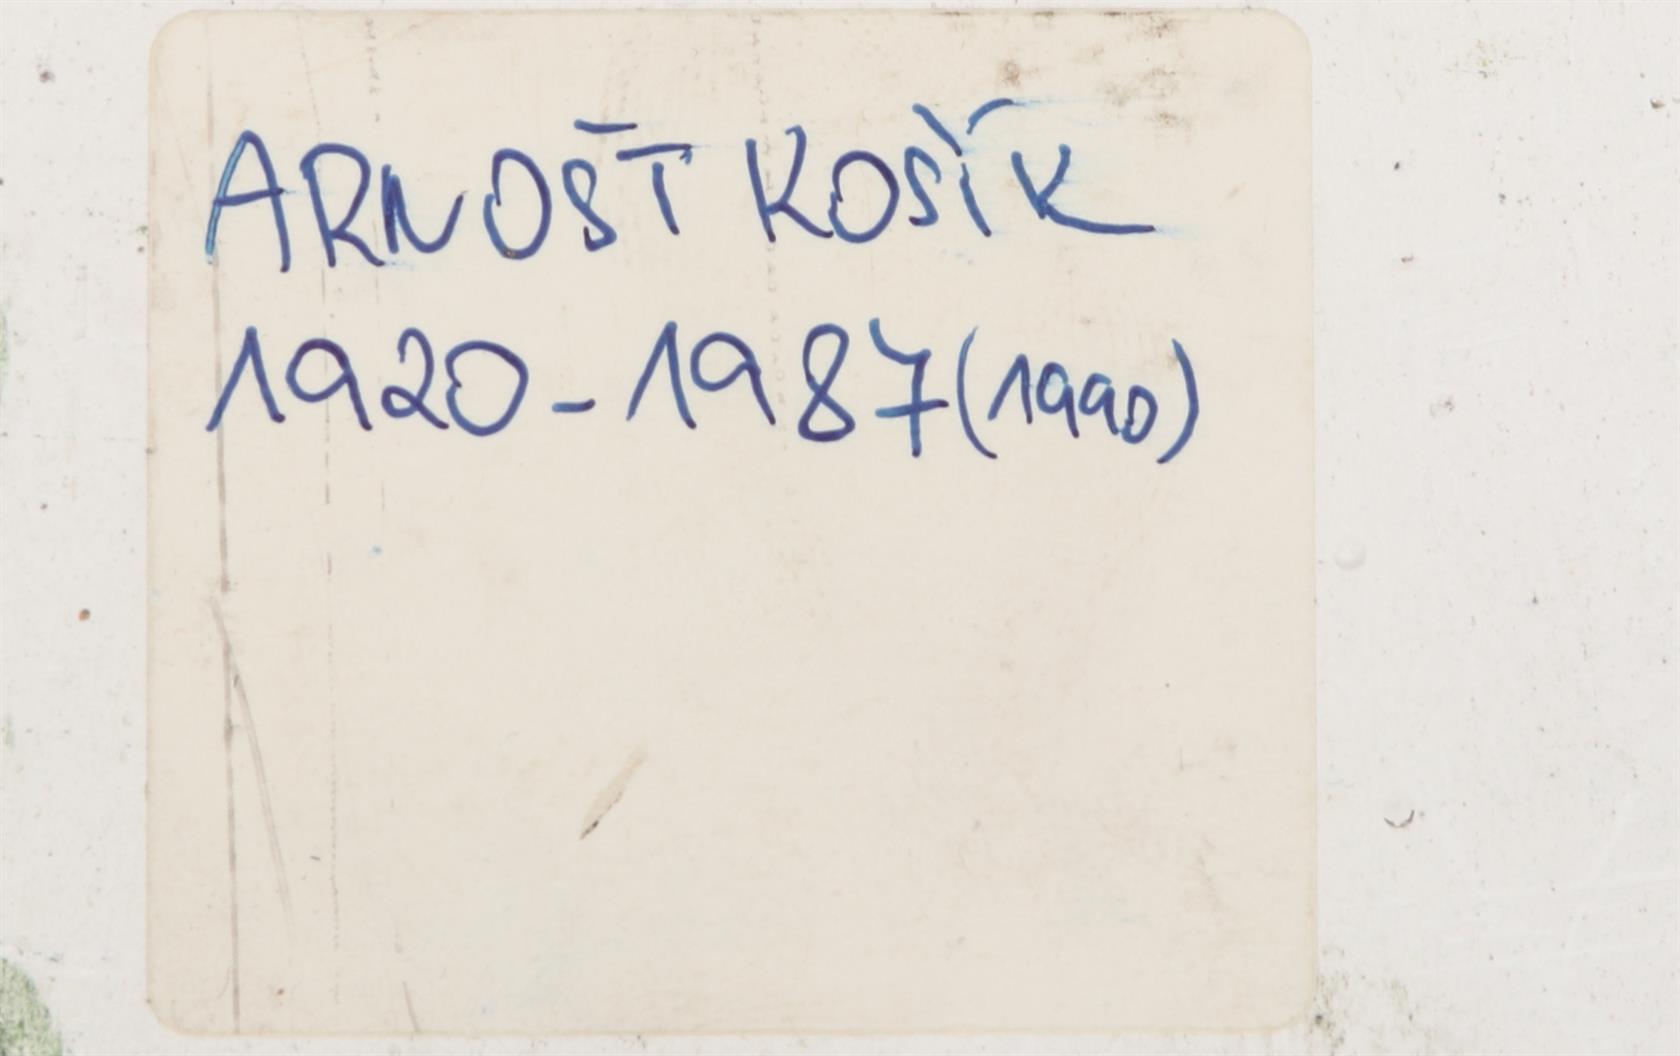 ARNOŠT KOSÍK
1920-1987(1990)